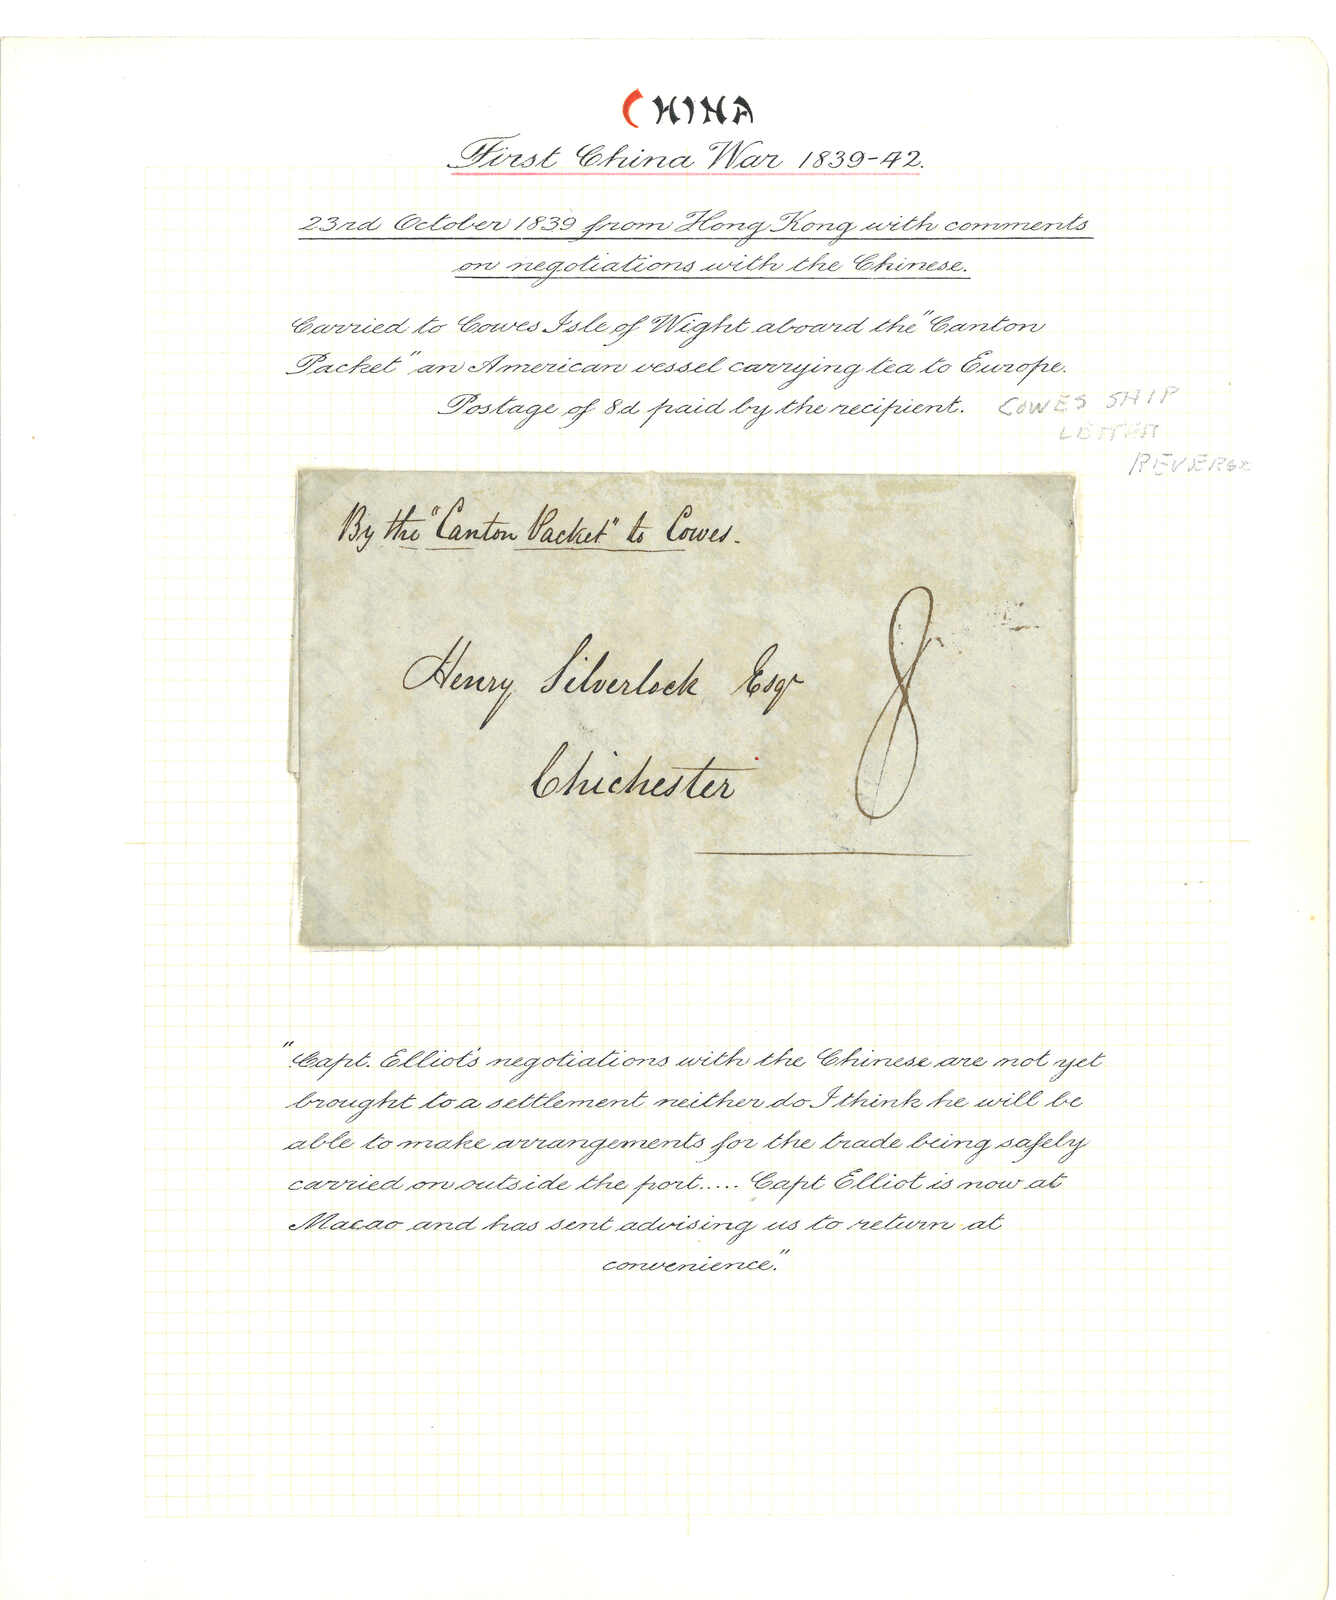 CHINA
First China War 1839-42.
23rd October 1839 from Hong Kong with comments
on negotiations with the Chinese.
Carried to Cowes Isle of Wight aboard the "Canton
Packet" an American vessel carrying tea to Europe.
Postage of 8d paid by the recipient.
COWES SHIP
LETTER
REVERSE
By the "Canton Packet" to Cowes.
Henry Silverlock Esqr
8
Chichester
"Capt. Elliot's negotiations with the Chinese are not yet
brought to a settlement neither do I think he will be
able to make arrangements for the trade being safely
carried on outside the port..... Capt Elliot is now at
Macao and has sent advising us to return at
convenience."